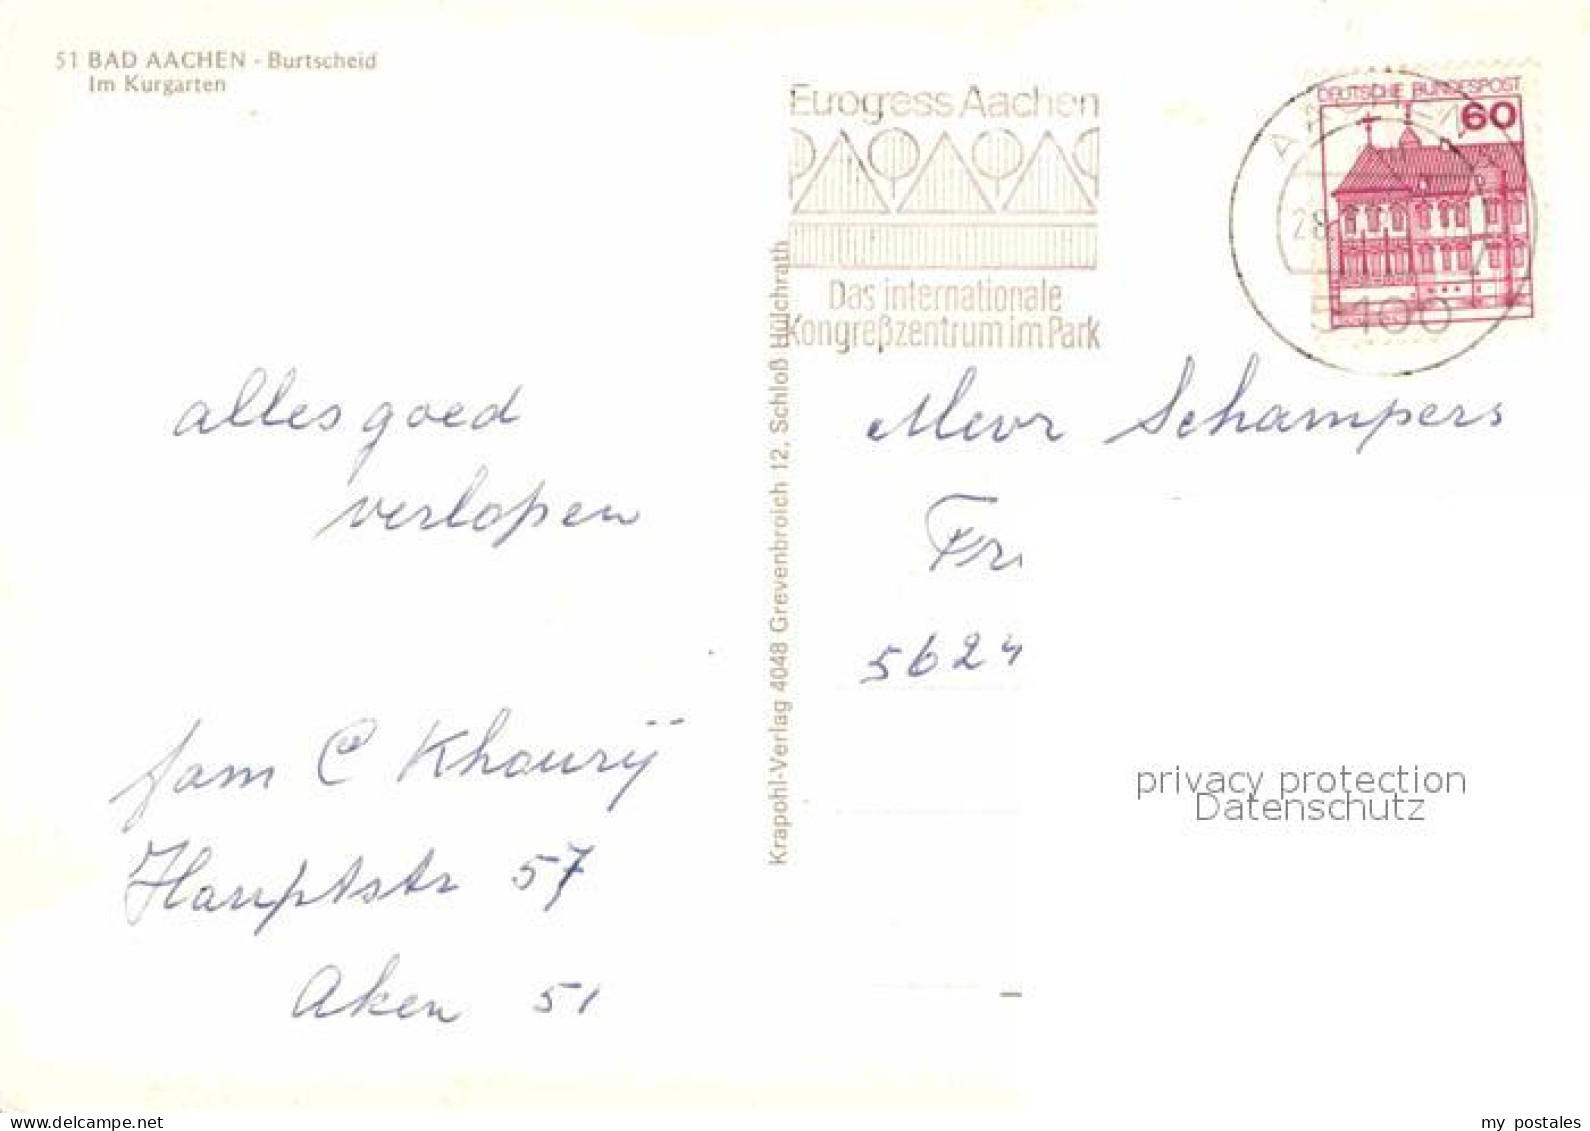 51 BAD AACHEN - Burtscheid
Im Kurgarten
Eurogress Aachen
Das internationale
Kongreßzentrum im Park
DEUTSCHE BUNDESPOST
60
28
5100
Krapohl-Verlag 4048 Grevenbroich 12, Schloß Hülchrath
alles goed
verlopen
fam C Khourÿ
Hauptstr 57
Aken 51
Mevr Schampers
Fr
5624
privacy protection
Datenschutz
my postales
delcampe.net